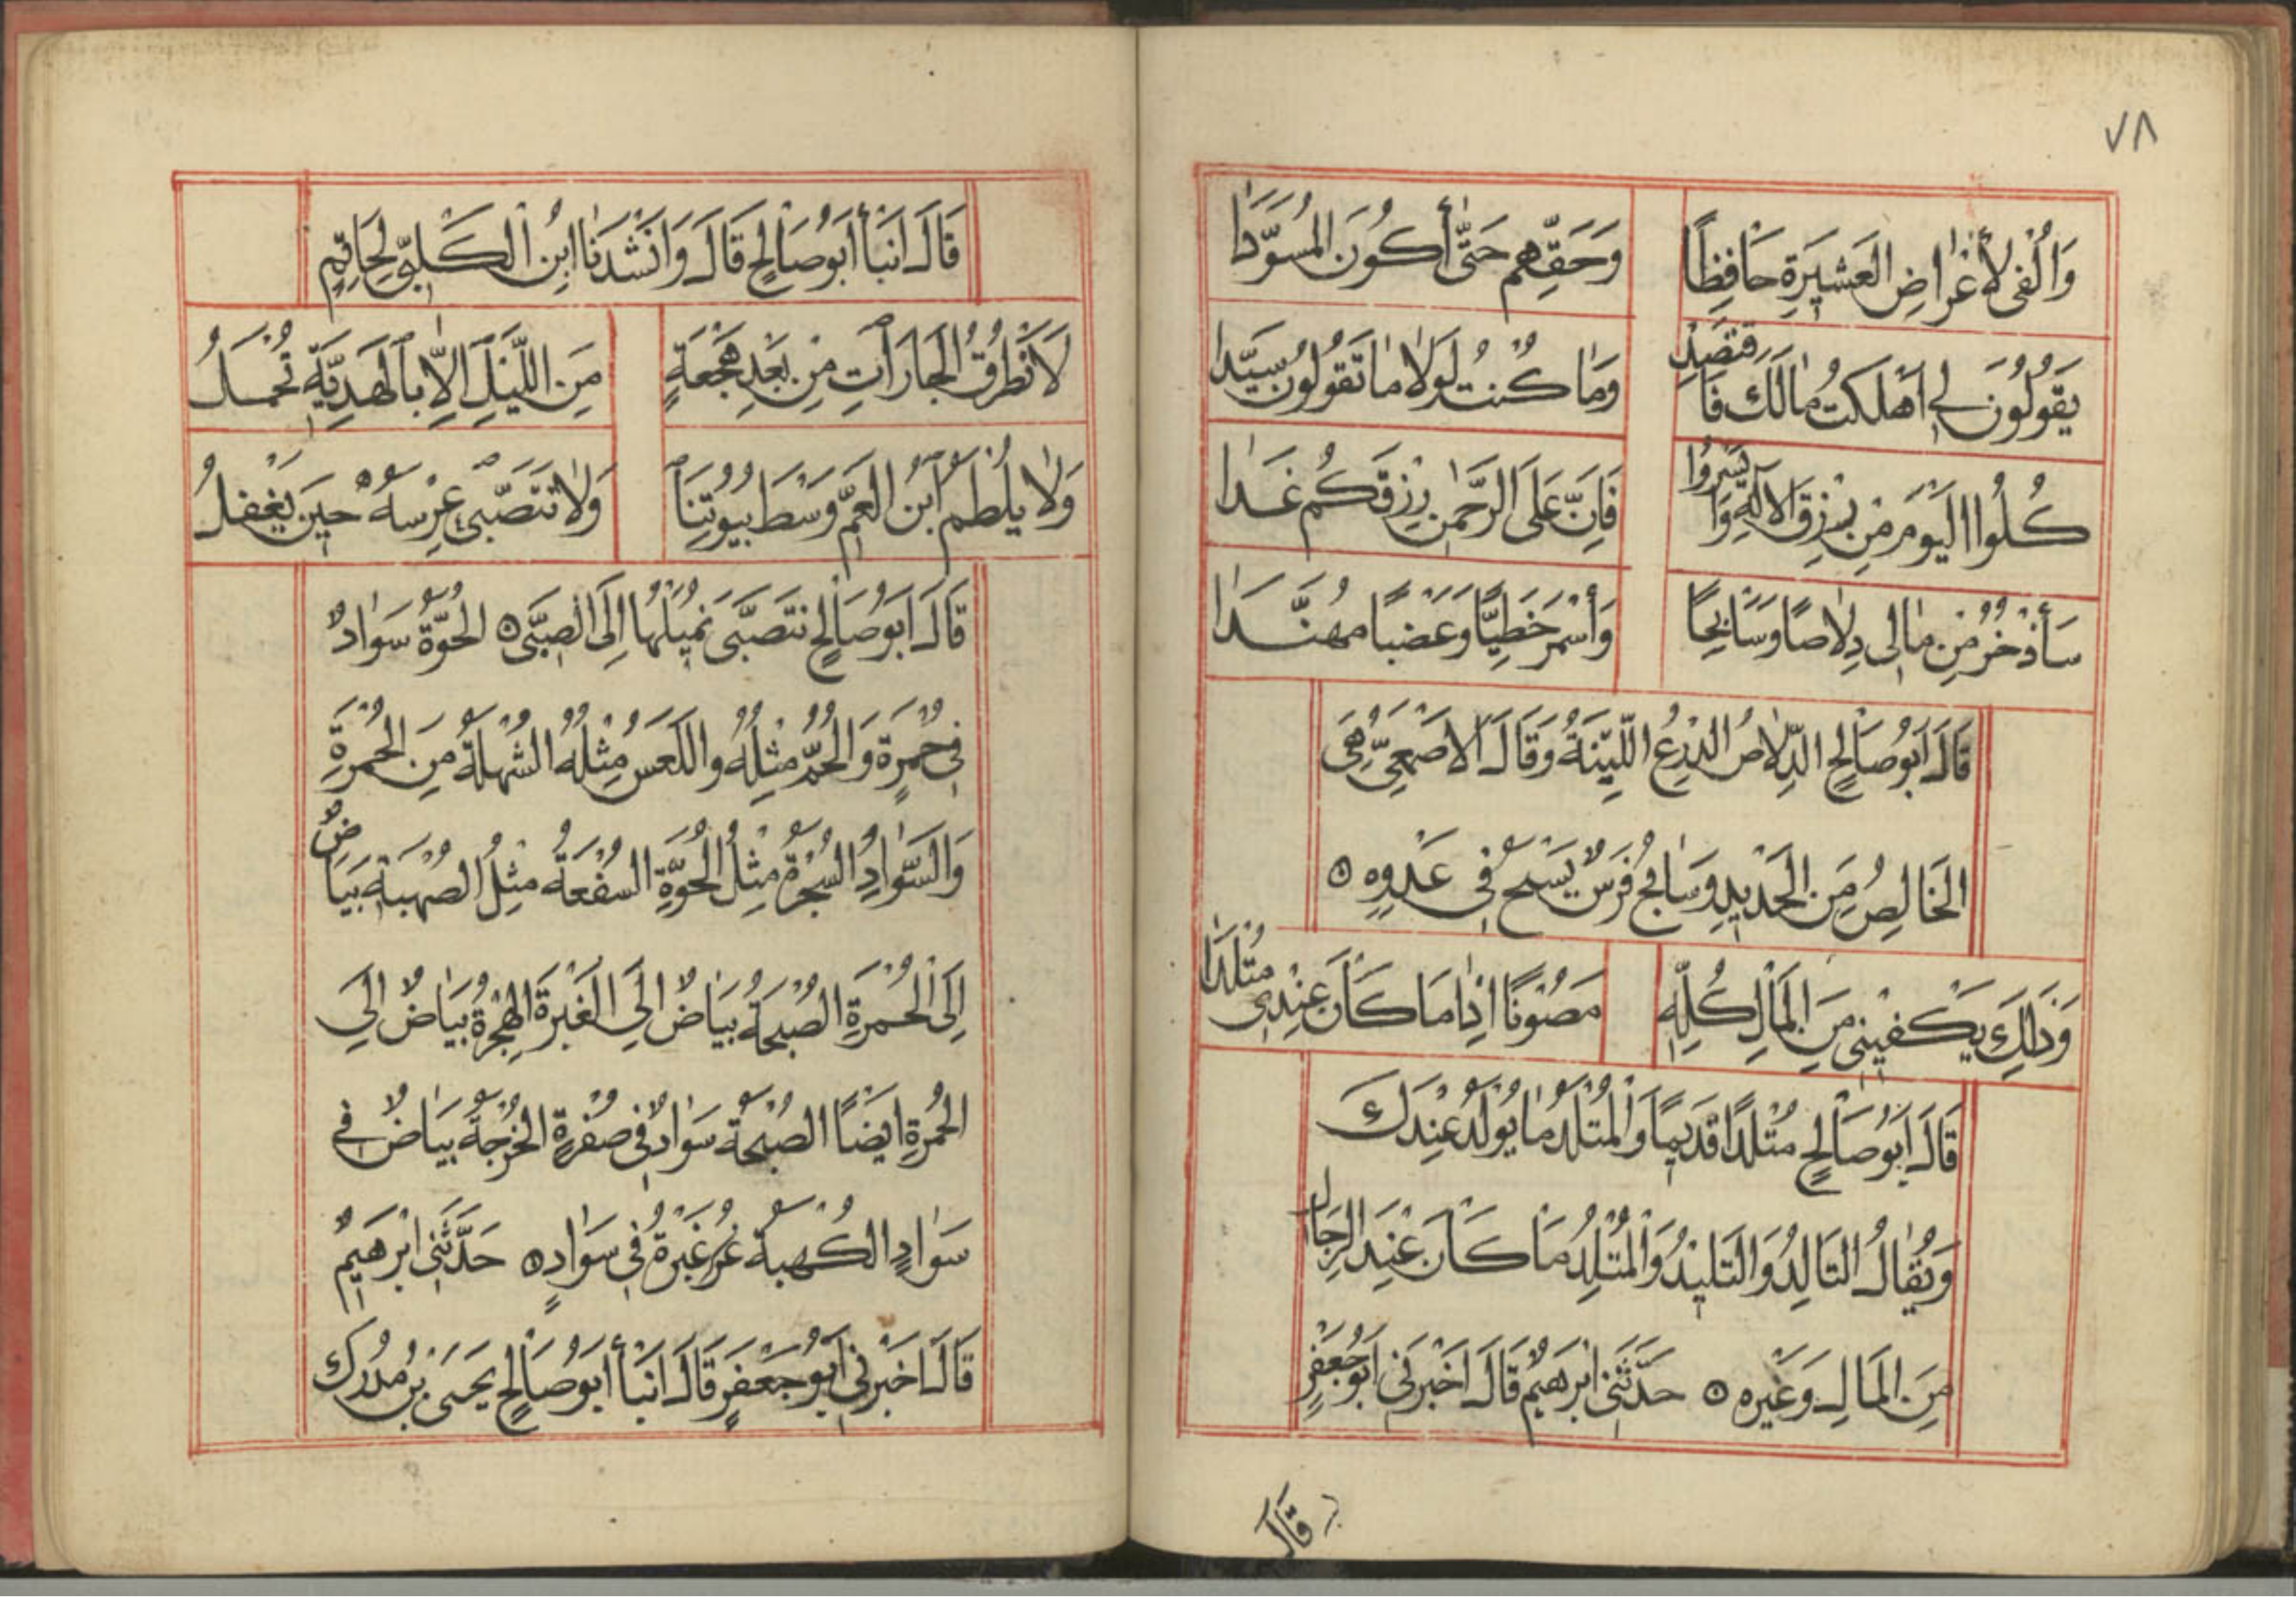 ٧٨
وَأُلْفَى لِأَعْرَاضِ العَشِيرَةِ حَافِظًا وَحَقِّهِم حَتَّى أَكُونَ المُسَوَّدَا
يَقُولُونَ لِي أَهْلَكْتَ مَالَكَ فَاقْتَصِدْ وَمَا كُنْتُ لَوْلَا مَا تَقُولُونَ سَيِّدَا
كُلُوا اليَوْمَ مِنْ رِزْقِ الإِلَهِ وَأَيْسِرُوا فَإِنَّ عَلَى الرَّحْمَنِ رِزْقَكُم غَدَا
سَأَذْخَرُ مِنْ مَالِي دِلَاصًا وَسَابِحًا وَأَسْمَرَ خَطِّيًّا وَعَضْبًا مُهَنَّدَا
قَالَ أَبُو صَالِحٍ الدِّلَاصُ الدِّرْعُ اللَّيِّنَةُ وَقَالَ الأَصْمَعِيُّ هِيَ
الخَالِصُ مِنَ الحَدِيدِ وَسَابِحٌ فَرَسٌ يَسْبَحُ فِي عَدْوِهِ ٥
وَذَلِكَ يَكْفِينِي مِنَ المَالِ كُلِّهِ مَصُونًا إِذَا مَا كَانَ عِنْدِي مُتْلَدَا
قَالَ أَبُو صَالِحٍ مُتْلَدًا قَدِيمًا وَالمُتْلَدُ مَا يُولَدُ عِنْدَكَ
وَيُقَالُ التَالِدُ وَالتَلِيدُ وَالمُتْلِدُ مَا كَانَ عِنْدَ الرِجَالِ
مِنَ المَالِ وَغَيْرِهِ ٥ حَدَّثَنِي إِبْرَهِيمُ قَالَ أَخْبَرَنِي أَبُو جَعْفَرٍ
قَالَ
قَالَ أَنْبَأَ أَبُو صَالِحٍ قَالَ وَأَنْشَدَنَا ابْنُ الكَلْبِيِّ لِحَاتِمٍ
لَا نَطْرُقُ الجَارَاتِ مِنْ بَعْدِ هَجْعَةٍ مِنَ اللَّيْلِ إِلَّا بِالهَدِيَّةِ تُحْمَلُ
وَلَا يُلْطَمُ ابْنُ العَمِّ وَسْطَ بُيُوتِنَا وَلَا نَتَصَبَّى عِرْسَهُ حِينَ يَغْفُلُ
قَالَ أَبُو صَالِحٍ نَتَصَبَّى نُمِيلُهَا إِلَى الصِبَى ٥ الحُوَّةُ سَوَادٌ
فِي حُمْرَةٍ وَالحُمُّ مِثْلُهُ وَاللَّعَسُ مِثْلُهُ الشُهْلَةُ مِنَ الحُمْرَةِ
وَالسَّوَادِ السُجْرَةُ مِثْلُ الحُوَّةِ السُفْعَةُ مِثْلُ الصُهْبَةِ بَيَاضٌ
إِلَى الحُمْرَةِ الصُبْحَةُ بَيَاضٌ إِلَى الغَبْرَةِ الهُجْرَةُ بَيَاضٌ إِلَى
الحُمْرَةِ أَيْضًا الصُبْحَةُ سَوَادٌ فِي صُفْرَةٍ الخُرْجَةُ بَيَاضٌ فِي
سَوَادٍ الكُهْبَةُ غُبْرَةٌ فِي سَوَادٍ ٥ حَدَّثَنِي إِبْرَهِيمُ
قَالَ أَخْبَرَنِي أَبُو جَعْفَرٍ قَالَ أَنْبَأَ أَبُو صَالِحٍ يَحْيَى بْنُ مُدْرِكٍ